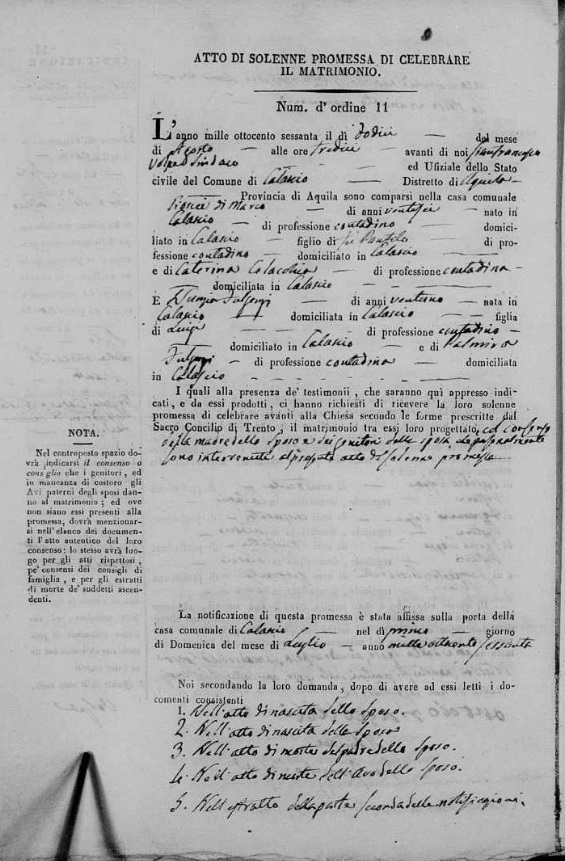 ATTO DI SOLENNE PROMESSA DI CELEBRARE
IL MATRIMONIO.
Num. d'ordine 11
L'anno mille ottocento sessanta il dì dodici — del mese
di Agosto — alle ore tredici — avanti di noi Gianfrancesco
Volpe Sindaco ed Ufiziale dello Stato
civile del Comune di Calascio — Distretto di Aquila —
— Provincia di Aquila sono comparsi nella casa comunale
di Marco — di anni ventisei — nato in
Calascio — di professione contadino — domici-
liato in Calascio — figlio di fu — di pro-
fessione contadino — domiciliato in Calascio —
e di Caterina — di professione contadina —
— domiciliata in Calascio —
E Fulgenzi — di anni ventuno — nata in
Calascio — domiciliata in Calascio — figlia
di Luigi — di professione contadino —
domiciliato in Calascio — e di Palmira
— di professione contadina — domiciliata
in Calascio — — — — — —
I quali alla presenza de' testimonii, che saranno quì appresso indi-
cati, e da essi prodotti, ci hanno richiesti di ricevere la loro solenne
promessa di celebrare avanti alla Chiesa secondo le forme prescritte dal
Sacro Concilio di Trento, il matrimonio tra essi loro progettato, col consenso
della madre dello sposo e dei genitori della sposa
sono intervenuti al presente atto di solenne promessa
NOTA.
Nel controposto spazio do-
vrà indicarsi il consenso o
consiglio che i genitori, ed
in mancanza di costoro gli
Avi paterni degli sposi dan-
no al matrimonio; ed ove
non siano essi presenti alla
promessa, dovrà menzionar-
si nell'elenco dei documen-
ti l'atto autentico del loro
consenso: lo stesso avrà luo-
go per gli atti rispettosi,
pe' consensi dei consigli di
famiglia, e per gli estratti
di morte de' suddetti ascen-
denti.
La notificazione di questa promessa è stata affissa sulla porta della
casa comunale di Calascio — nel dì primo — giorno
di Domenica del mese di Luglio — anno mille ottocento sessanta
Noi secondando la loro domanda, dopo di avere ad essi letti i do-
cumenti consistenti
1. Nell'atto di nascita dello Sposo.
2. Nell'atto di nascita della Sposa
3. Nell'atto di morte del padre dello Sposo.
4. Nell'atto di morte dell'Avo dello Sposo.
5. Nell'estratto della parte seconda delle notificazioni.